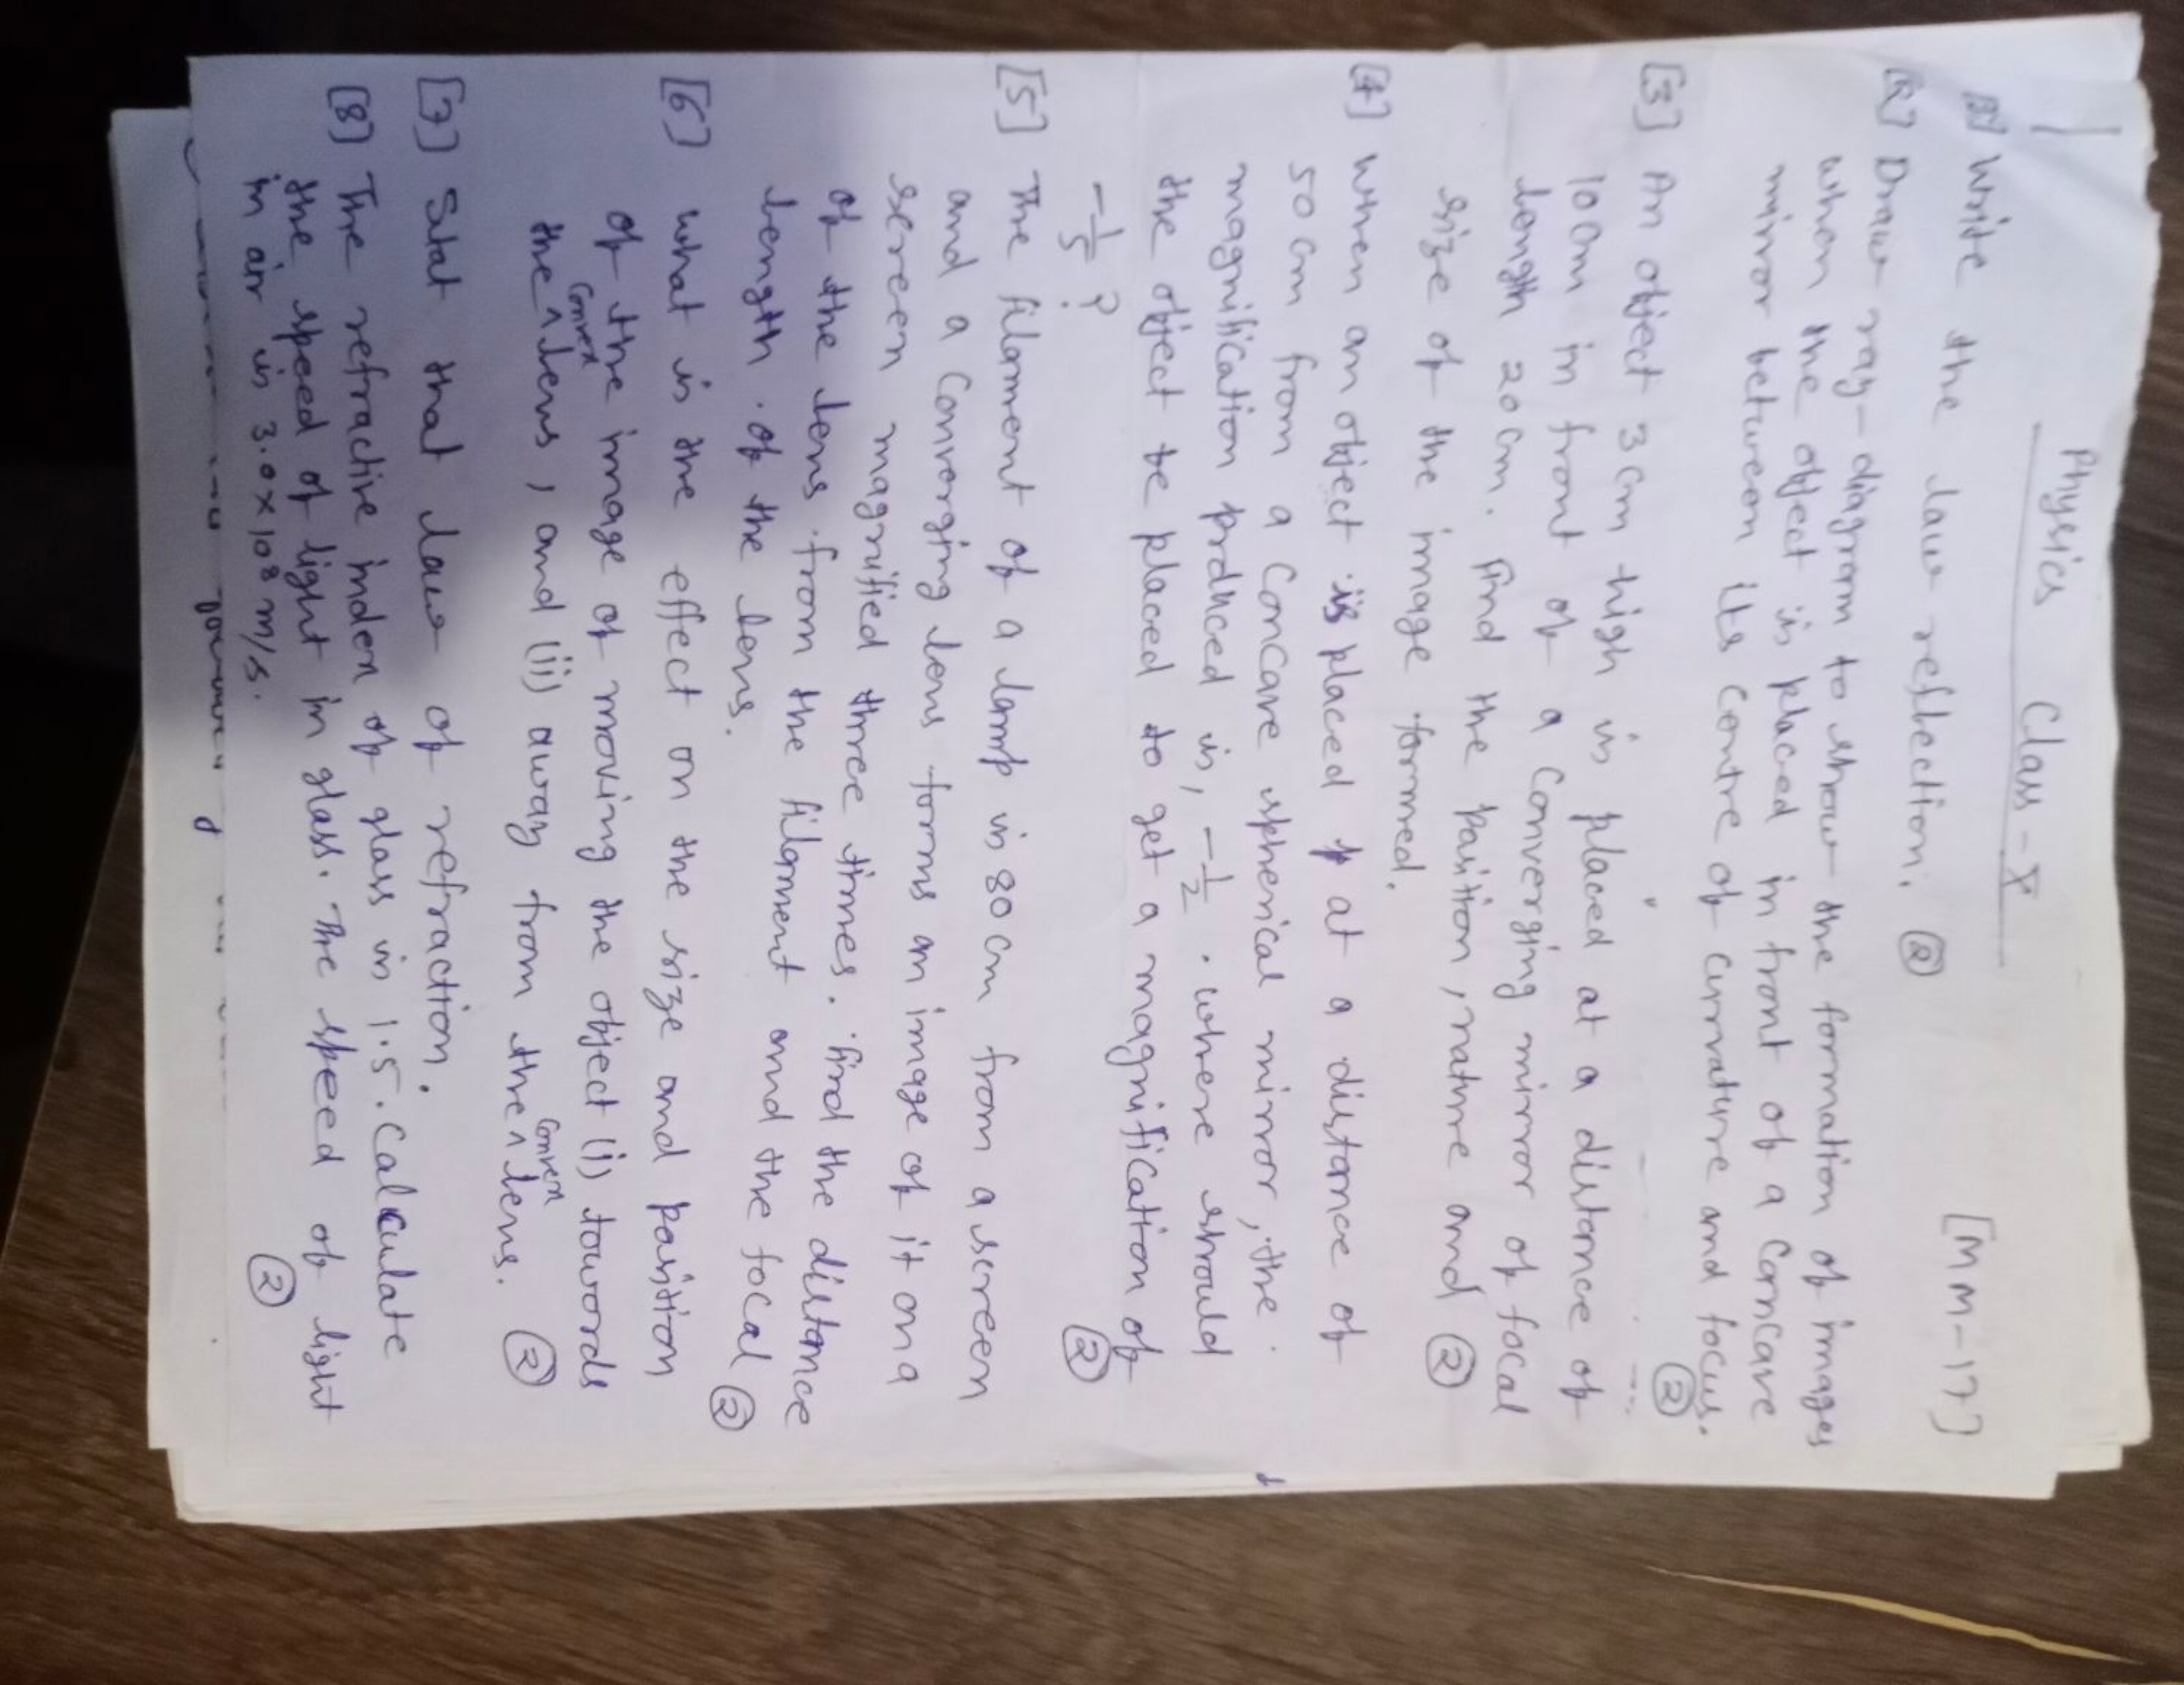 Physics Class - X
[MM-17]
[1] Write the law reflection. (2)
[2] Draw ray-diagram to show the formation of images
when the object is placed in front of a concave
mirror between its centre of curvature and focus.
(2)
[3] An object 3 cm high is placed at a distance of
10 cm in front of a converging mirror of focal
length 20 cm. Find the position, nature and
size of the image formed. (2)
[4] When an object is placed at a distance of
50 cm from a concave spherical mirror, the
magnification produced is, -1/2. where should
the object be placed to get a magnification of
-1/5 ? (2)
[5] The filament of a lamp is 80 cm from a screen
and a converging lens forms an image of it on a
screen magnified three times. Find the distance
of the lens from the filament and the focal
length of the lens. (2)
[6] what is the effect on the size and position
of the image of moving the object (i) towords
the convex lens, and (ii) away from the convex lens. (2)
[7] Stat that law of refraction.
[8] The refractive index of glass is 1.5. Calculate
the speed of light in glass. The speed of light
in air is 3.0 x 10⁸ m/s. (2)